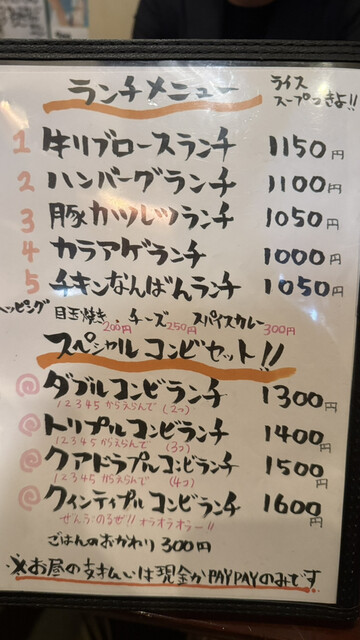 ランチメニュー
ライス
スープつきよ!!
1 牛リブロースランチ 1150円
2 ハンバーグランチ 1100円
3 豚カツレツランチ 1050円
4 カラアゲランチ 1000円
5 チキンなんばんランチ 1050円
トッピング 目玉焼き、チーズ スパイスカレー
200円 250円 300円
スペシャルコンビセット!!
@ダブルコンビランチ 1300円
12345からえらんで(2つ)
@トリプルコンビランチ 1400円
12345からえらんで (3つ)
@クアドラプルコンビランチ 1500円
12345からえらんで (4つ)
@クインティプルコンビランチ 1600円
ぜんぶのるぜ!!オラオラオラー!!
ごはんのおかわり300円
※お昼の支払いは現金かPAYPAYのみです